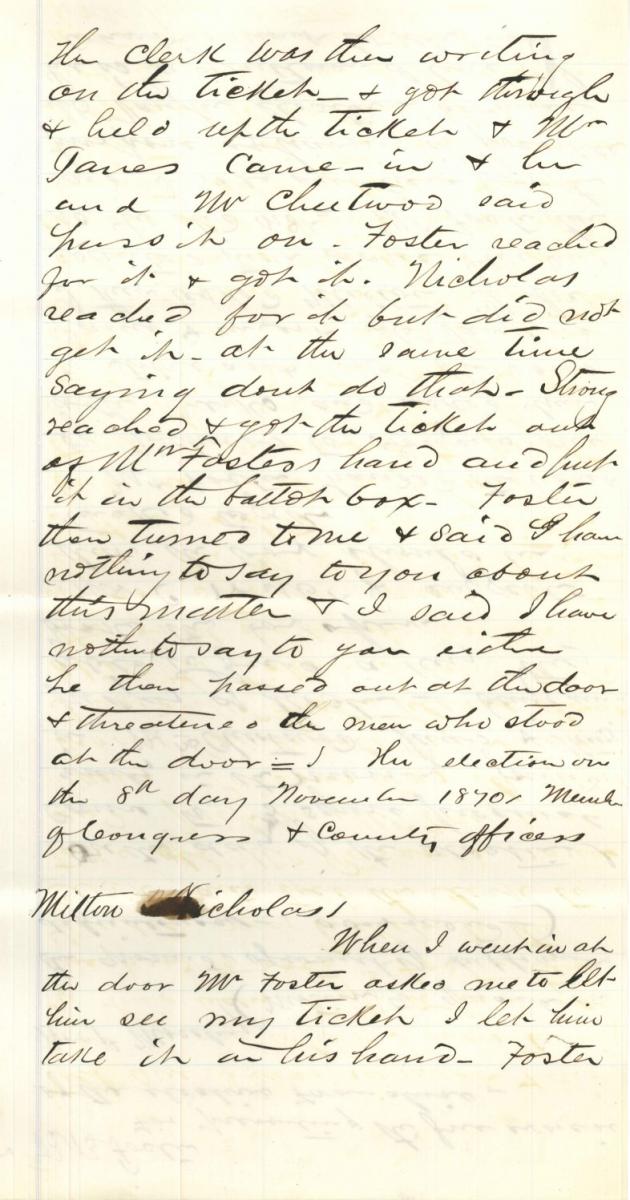 The clerk was then writing
on the ticket - & got through
& held up the ticket & Mr
Janes came - in & he
and Mr Cheetwood said
pass it on - Foster reached
for it & got it. Nicholas
reached for it but did not
get it - at the same time
saying dont do that - Strong
reached & got the ticket out
of Mr Fosters hand and put
it in the ballot box - Foster
then turned to me & said I have
nothing to say to you about
this matter & I said I have
nothin to say to you either
he then passed out at the door
& threatened the men who stood
at the door = The election on
the 8th day November 1870, Member
of Congress & County officers
Milton Nicholas
When I went in at
the door Mr Foster asked me to let
him see my ticket I let him
take it in his hand - Foster